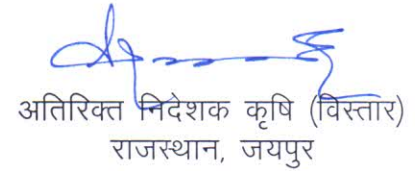 अतिरिक्त निदेशक कृषि (विस्तार)
राजस्थान, जयपुर